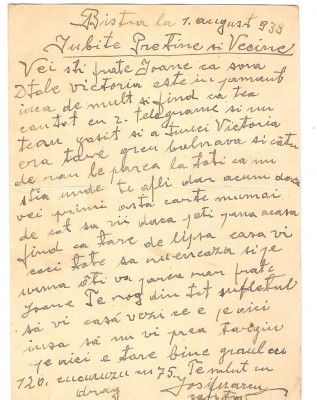 Bistra la 1. august 939
Iubite Pretine si Vecine
Vei sti frate Ioane ca sora
Dtale victoria este in pamant
inca de mult si find ca tea
cautat cu 2. telegrame si nu
teau gasit si atunci Victoria
era tare greu balnava si cătu
de rau le parea la toti ca nu
stia unde te afli dar acum daca
vei primi asta carte numai
de cat sa vii daca poti pana acasa
find ca tare de lipsa casa vi
caci tote sa
urma ôti va parea rau frate
Ioane Te rog din tot sufletul
să vi casă vezi ce e pe aici
insa să nu vi prea tarziu
pe aici e tare bine graul cu
120. cucuruzu cu 75. Te salut cu
drag Iosif